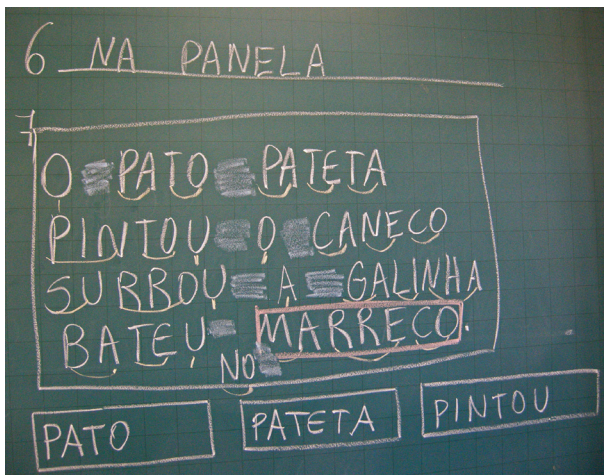 6 NA PANELA
7
O PATO PATETA
PINTOU O CANECO
SURROU A GALINHA
BATEU NO MARRECO.
PATO PATETA PINTOU